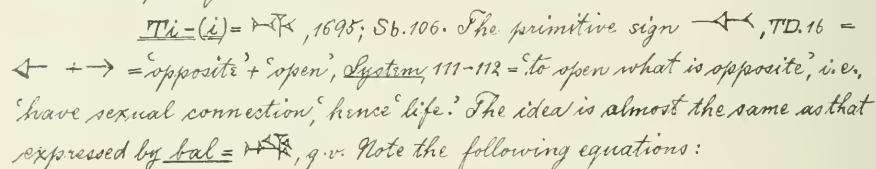 Ti-(i) = 𒋾, 1695; Sb. 106. The primitive sign , TD. 16 =
+ → = 'opposite' + 'open', System, 111-112 = 'to open what is opposite', i.e.,
'have sexual connection', hence 'life.' The idea is almost the same as that
expressed by bal = 𒁄, q.v. Note the following equations: